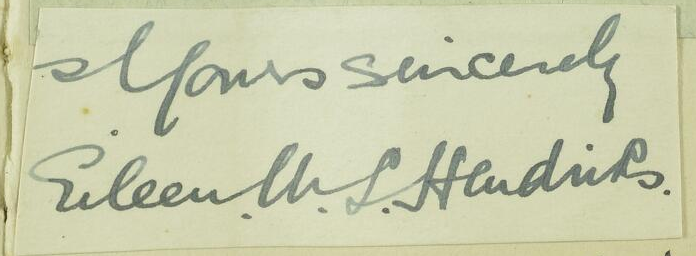 Yours sincerely
Eileen. M. L. Hendriks.